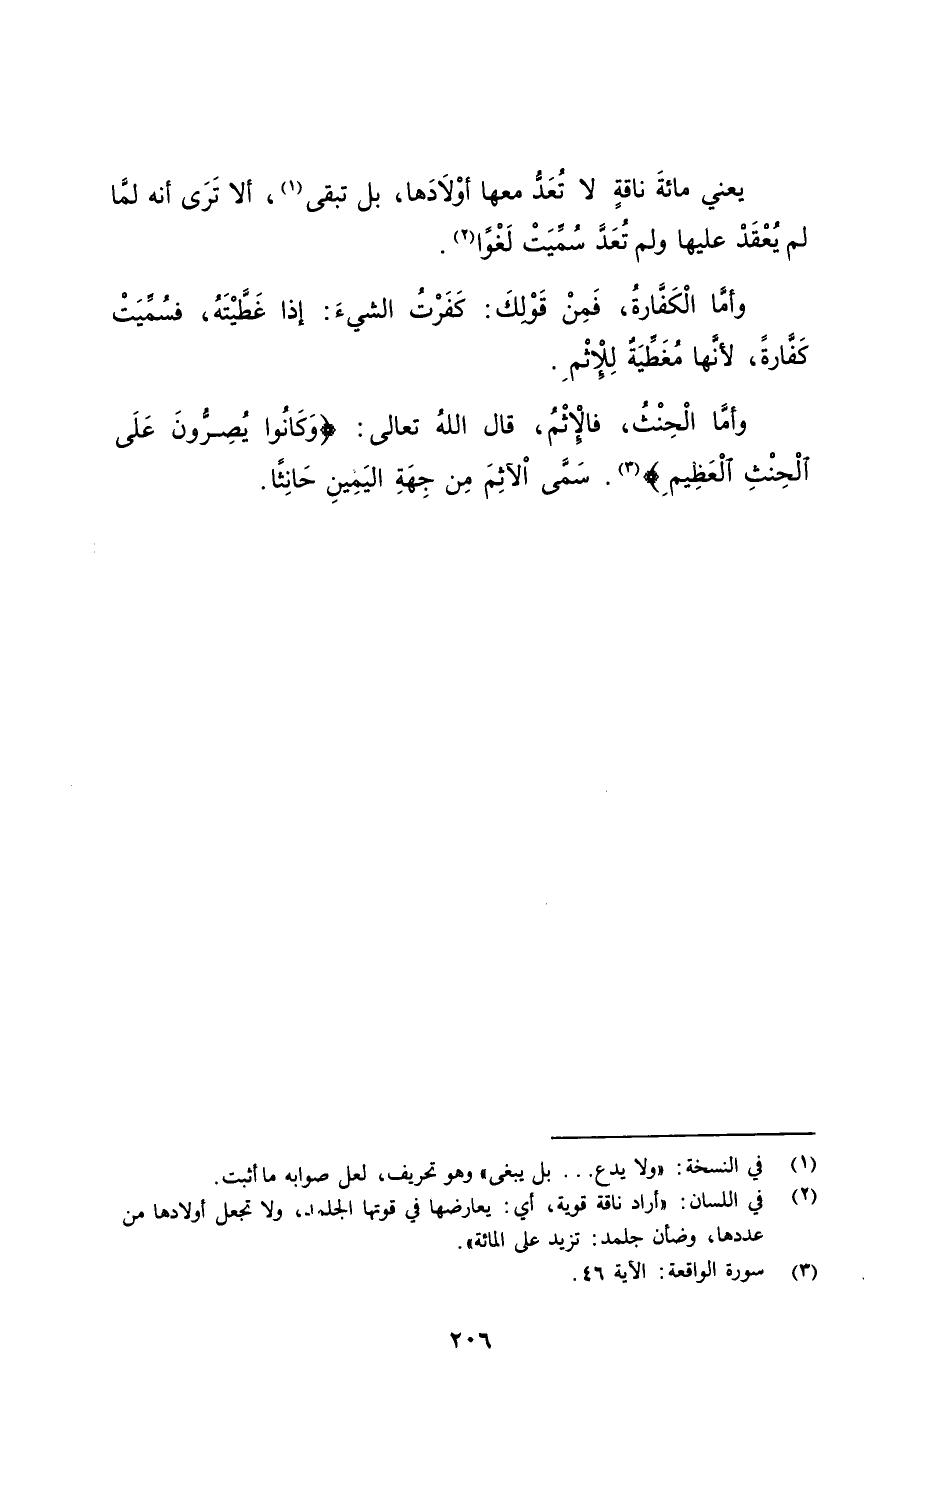 يعني مائةَ ناقةٍ لا تُعَدُّ معها أوْلَادَها، بل تبقى(١)، ألا تَرَى أنه لمَّا
لم يُعْقَدْ عليها ولم تُعَدَّ سُمِّيَتْ لَغْوًا(٢).
وأمَّا الْكَفَّارةُ، فَمِنْ قَوْلِكَ: كَفَرْتُ الشيءَ: إذا غَطَّيْتَهُ، فسُمِّيَتْ
كَفَّارةً، لأنَّها مُغَطِّيَةٌ لِلْإِثْمِ.
وأمَّا الْحِنْثُ، فالْإِثْمُ، قال اللهُ تعالى: ﴿وَكَانُوا يُصِرُّونَ عَلَى
ٱلْحِنْثِ ٱلْعَظِيمِ﴾(٣). سَمَّى ٱلآثِمَ مِن جِهَةِ اليَمِينِ حَانِثًا.
(١) في النسخة: «ولا يدع... بل يبغى» وهو تحريف، لعل صوابه ما أثبت.
(٢) في اللسان: «أراد ناقة قوية، أي: يعارضها في قوتها الجلمد، ولا تجعل أولادها من
عددها، وضأن جلمد: تزيد على المائة».
(٣) سورة الواقعة: الآية ٤٦.
٢٠٦